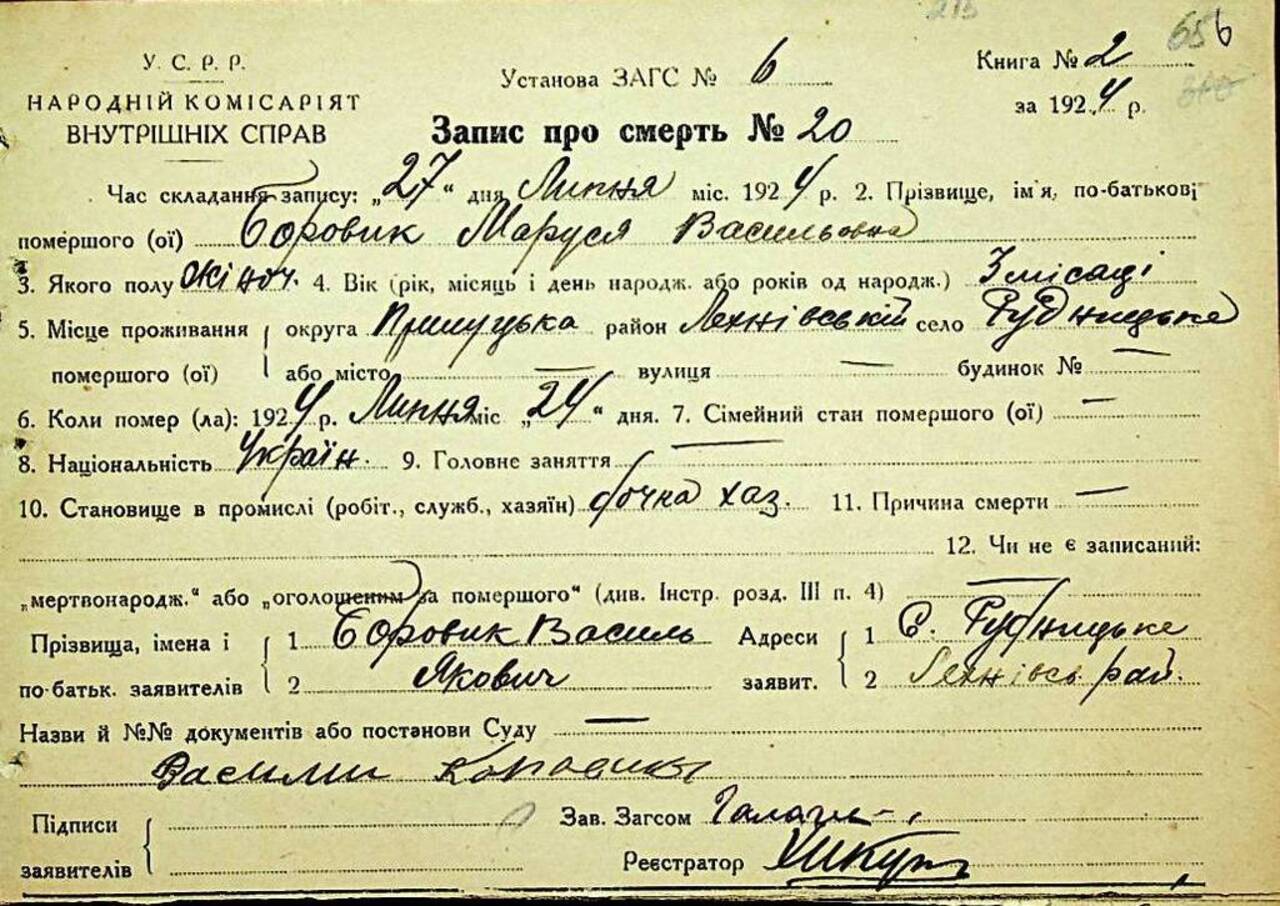 656
У. С. Р. Р.
НАРОДНІЙ КОМІСАРІЯТ
ВНУТРІШНІХ СПРАВ
Установа ЗАГС № 6
Книга № 2
за 1924 р.
Запис про смерть № 20
Час складання запису: „27“ дня Липня міс. 1924 р. 2. Прізвище, ім'я, по-батькові
помершого (ої) Боровик Маруся Васильовна
3. Якого полу жіноч. 4. Вік (рік, місяць і день народж. або років од народж.) 3 місяці
5. Місце проживання помершого (ої) округа Прилуцька район Лехнівській село Рудницьке
або місто — вулиця — будинок № —
6. Коли помер (ла): 1924 р. Липня міс „24“ дня. 7. Сімейний стан помершого (ої) —
8. Національність Україн. 9. Головне заняття —
10. Становище в промислі (робіт., служб., хазяїн) дочка хаз. 11. Причина смерти —
12. Чи не є записаний:
„мертвонародж.“ або „оголошеним за помершого“ (див. Інстр. розд. III п. 4) —
Прізвища, імена і по-батьк. заявителів 1 Боровик Василь Адреси заявит. 1 С. Рудницьке
2 Якович 2 Лехнівсь. рай.
Назви й №№ документів або постанови Суду —
Підписи заявителів
Зав. Загсом
Реєстратор